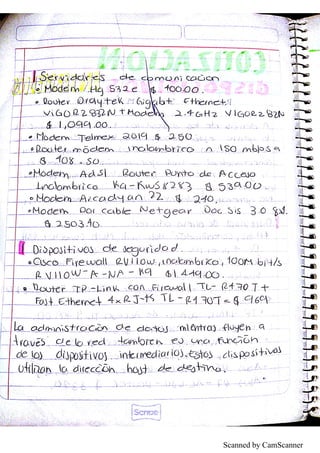 Servidores de comunicación
• Modem Hg 532e $ 100.00.
• Router Draytek Gigabit Ethernet
VIGOR2832N + Modem 2.4GHz VIGOR2 82N
$ 1,099.00
• Modem Telmex 2019 $ 250
• Router módem inalambrico n 150 mbps a
$ 108.50
• Modem Adsl Router Punto de Acceso
Inalambrico Kq-KWS8283 $ 539.00
• Modem Arcadyan 22 $ 210,
• Modem Por cable Netgear Doc sis 3.0
$ 2503.10
Dispositivos de seguridad
• Cisco Firewall RV110W, inalambrico, 100M bit/s
RV110W-A-NA-K9 $1.449.00.
• Router TP-Link con Firewall TL-R470T+
Fast Ethernet 4xRJ-45 TL-R470T = $ 969
La administración de datos mientras fluyen a
través de la red tambien es una función
de los dispositivos intermediarios. Estos dispositivos
utilizan la dirección host de destino.
Scribe
Scanned by CamScanner